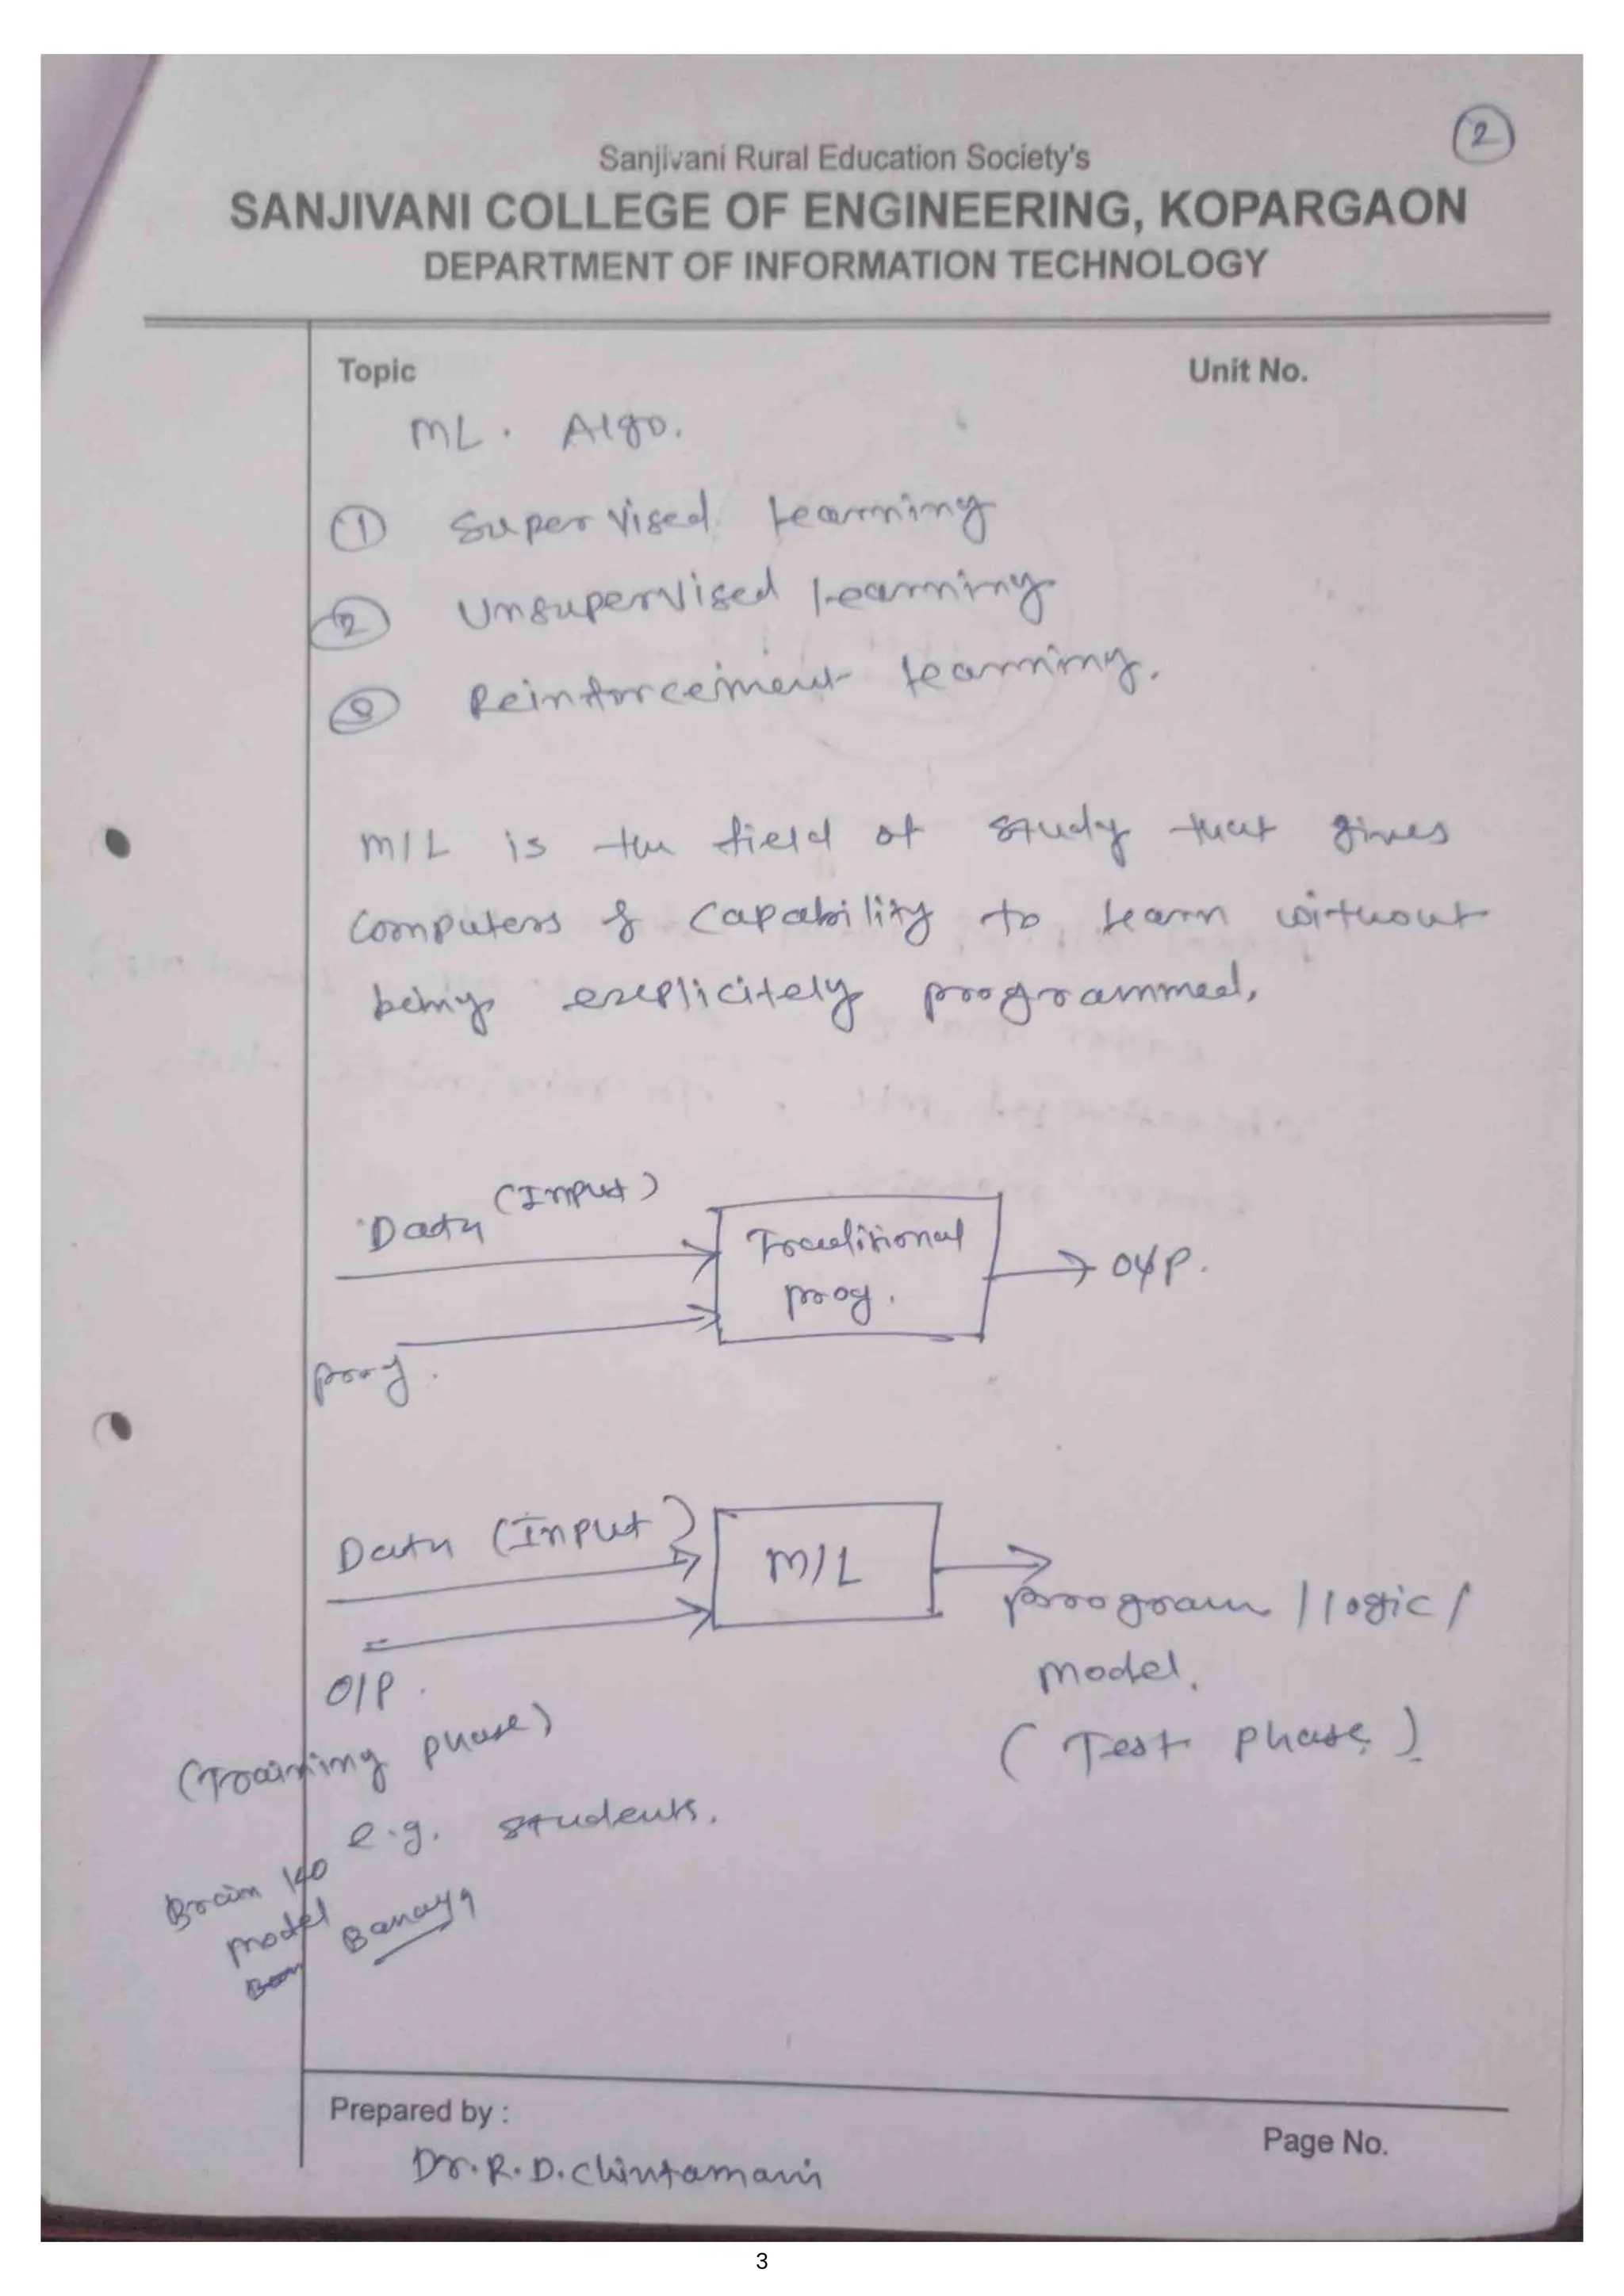 2
Sanjivani Rural Education Society's
SANJIVANI COLLEGE OF ENGINEERING, KOPARGAON
DEPARTMENT OF INFORMATION TECHNOLOGY
Topic Unit No.
ML. Algo.
1 Supervised Learning
2 Unsupervised Learning
3 Reinforcement learning.
M/L is the field of study that gives
Computers & Capability to learn without
being explicitely programmed.
Data (Input)
Traditional
prog.
O/P.
prog.
Data (Input)
M/L
program / logic /
model.
O/P.
(Training phase)
(Test phase)
e.g. students.
Brain ko
model Banaya
Prepared by :
Page No.
Dr. R. D. Chintamani
3